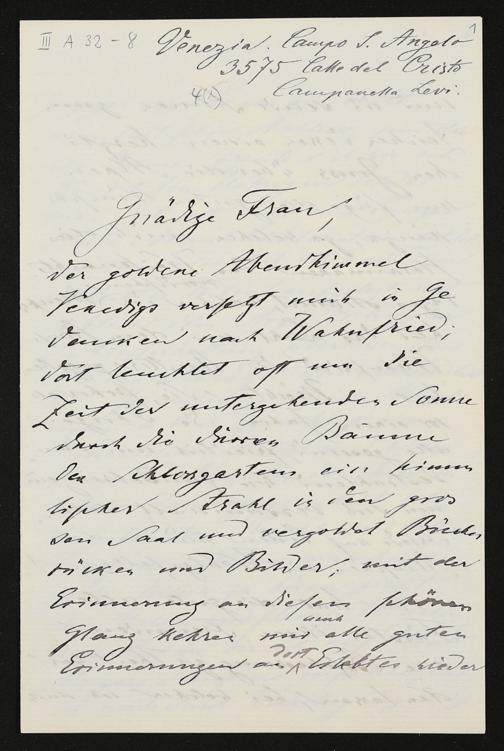 III A 32-8
1
Venezia. Campo S. Angelo
3575 Calle del Cristo
Campanella Levi.
4(A)
Gnädige Frau,
der goldene Abendhimmel
Venedigs versetzt mich in Ge
danken nach Wahnfried;
dort leuchtet oft um die
Zeit der untergehenden Sonne
durch die dürren Bäume
des Schlossgartens ein himm
lischer Strahl in den gros
sen Saal und vergoldet Bücher
rücken und Bilder; mit der
Erinnerung an diesen schönen
Glanz kehren mir auch alle guten
Erinnerungen an dort Erlebtes wieder